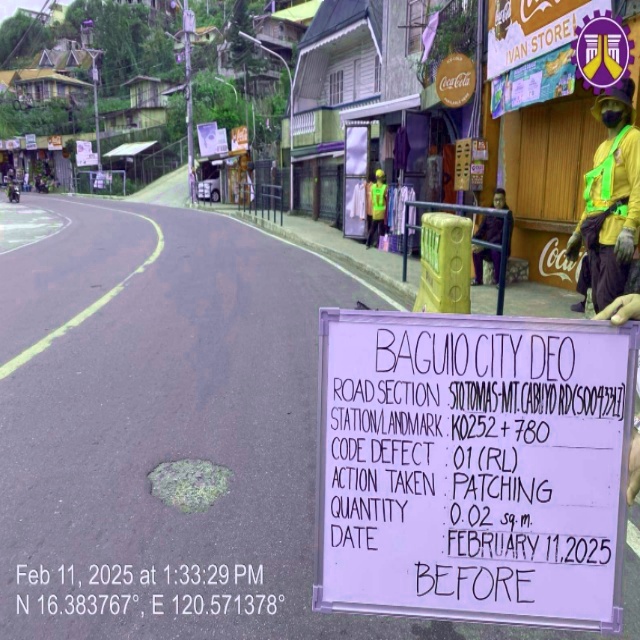 IVAN STORE
Coca-Cola
Coca-Cola
BAGUIO CITY DEO
ROAD SECTION : STO TOMAS-MT. CABUYO RD (S00433LZ)
STATION/LANDMARK : K0252 + 780
CODE DEFECT : 01 (RL)
ACTION TAKEN : PATCHING
QUANTITY : 0.02 sq.m.
DATE : FEBRUARY 11, 2025
BEFORE
Feb 11, 2025 at 1:33:29 PM
N 16.383767°, E 120.571378°